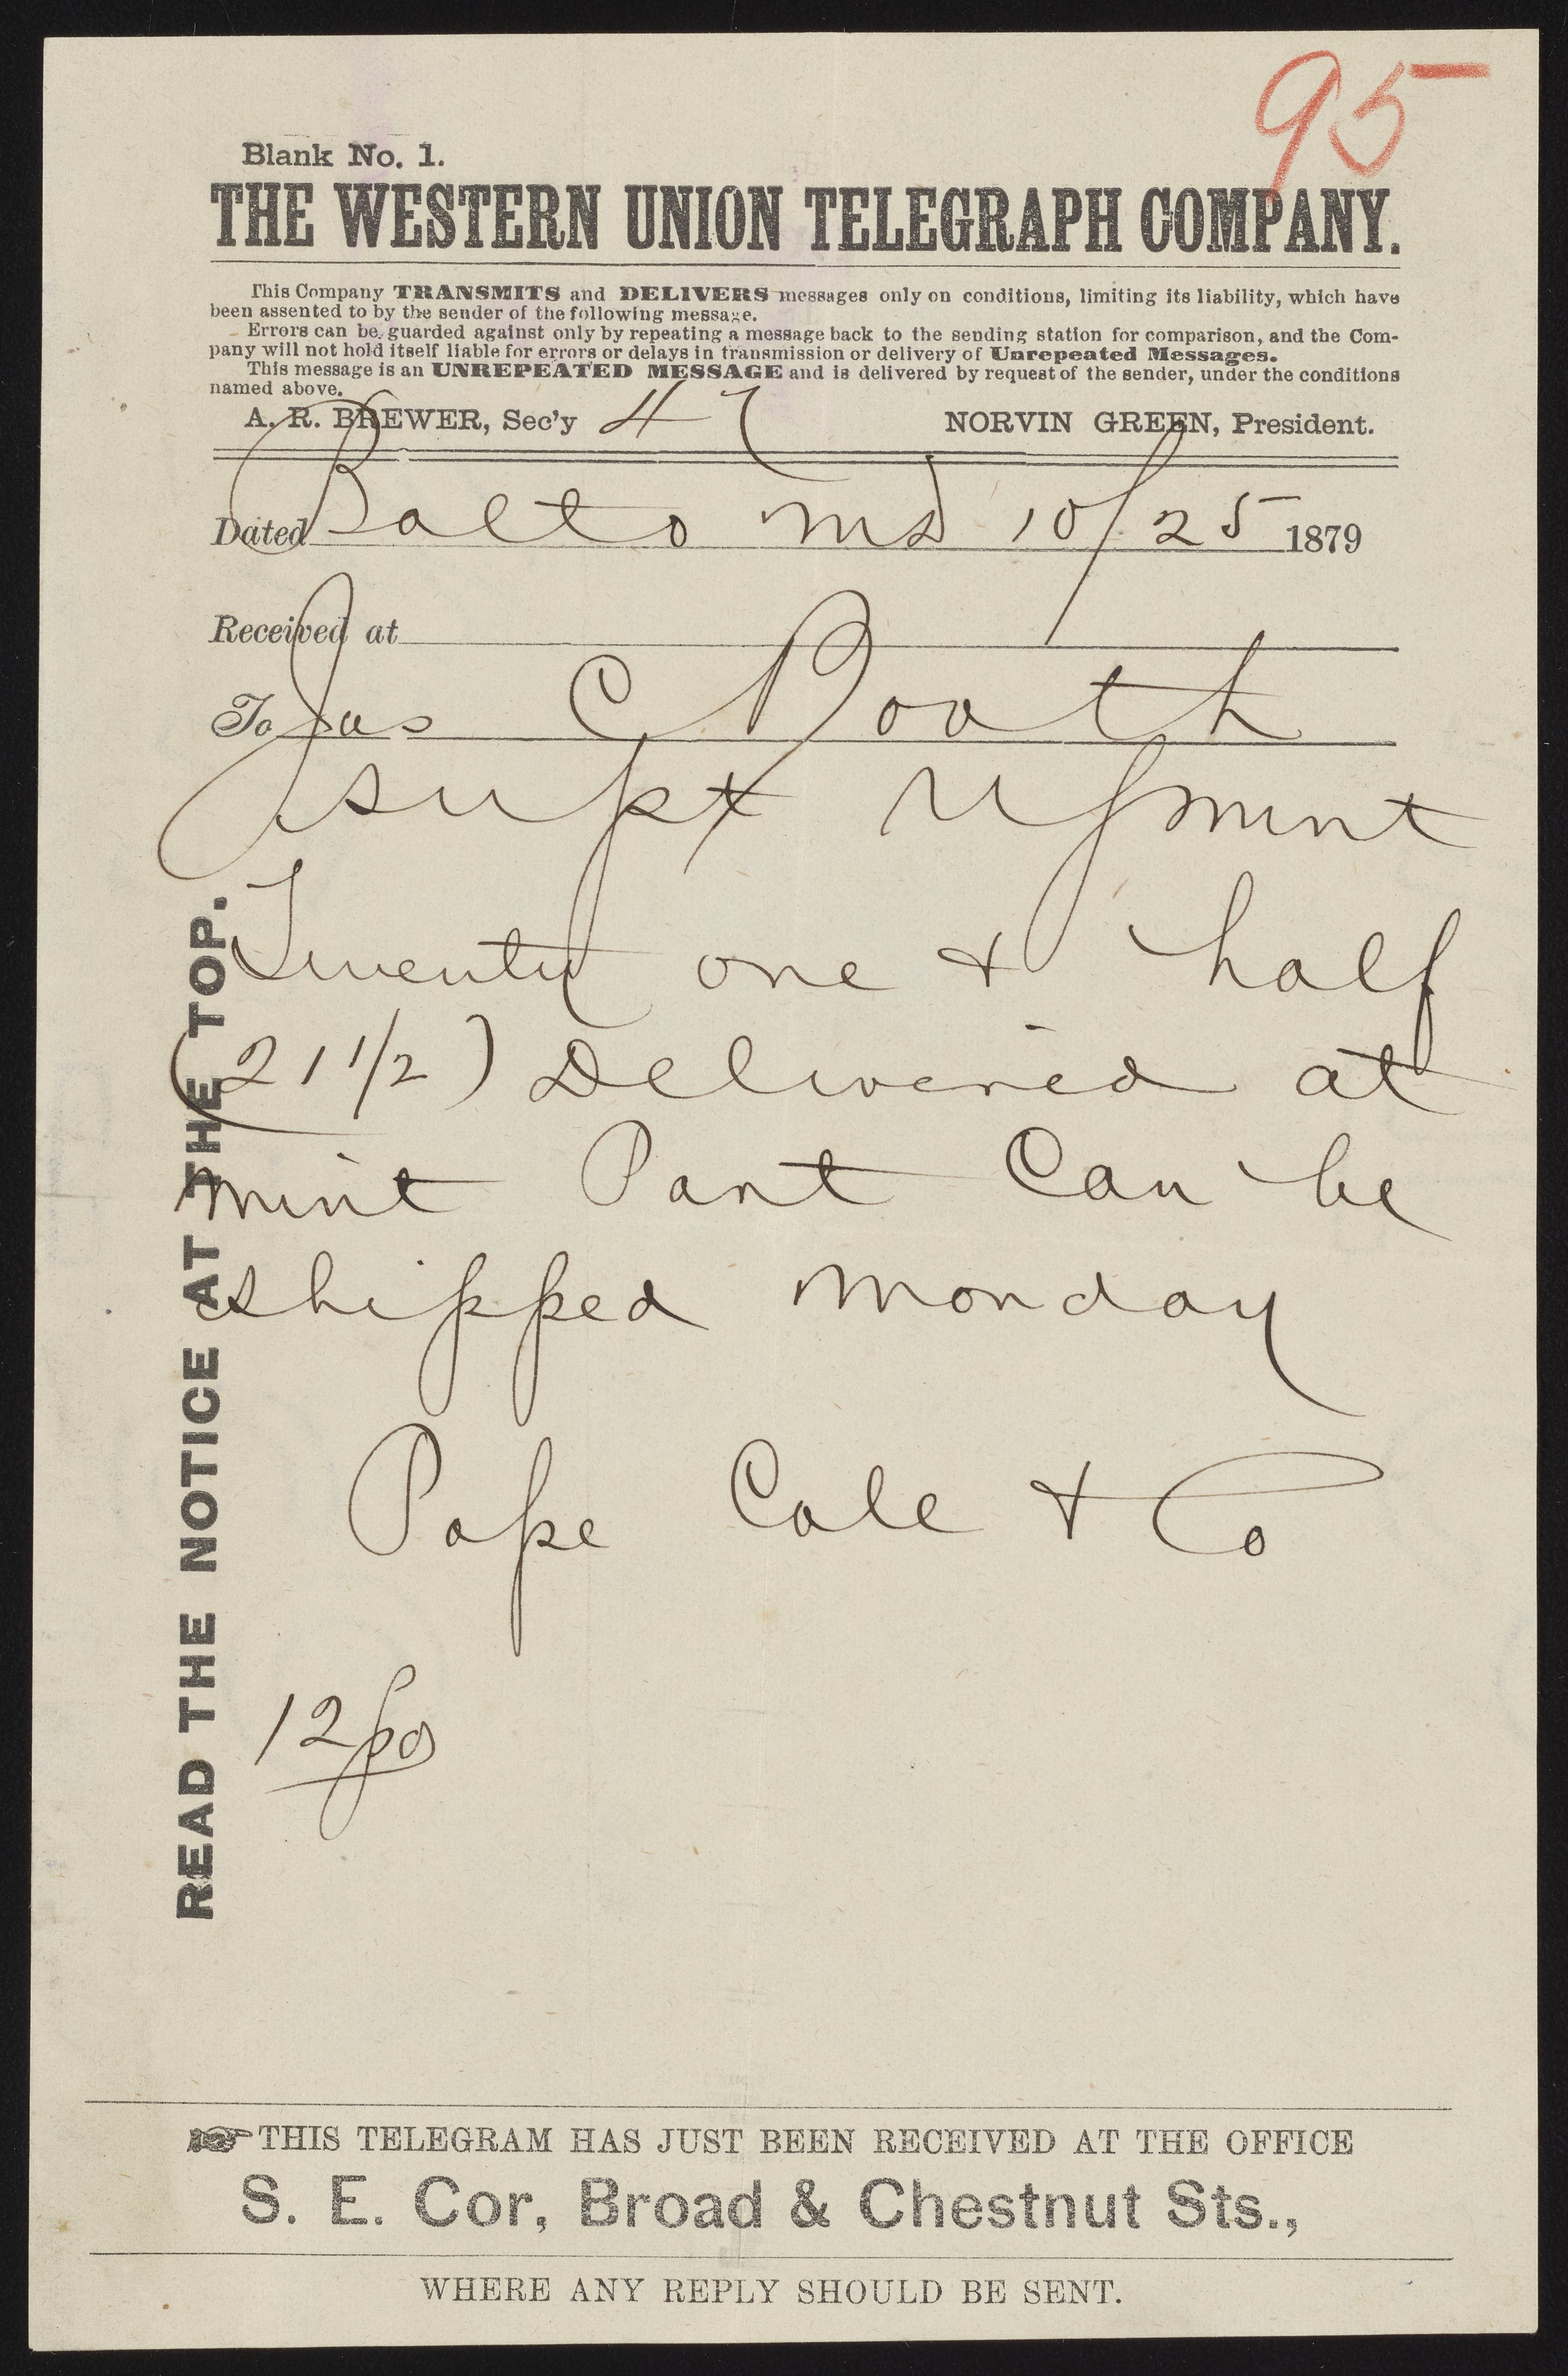 95
Blank No. 1.
THE WESTERN UNION TELEGRAPH COMPANY.
This Company TRANSMITS and DELIVERS messages only on conditions, limiting its liability, which have
been assented to by the sender of the following message.
Errors can be guarded against only by repeating a message back to the sending station for comparison, and the Com-
pany will not hold itself liable for errors or delays in transmission or delivery of Unrepeated Messages.
This message is an UNREPEATED MESSAGE and is delivered by request of the sender, under the conditions
named above.
A. R. BREWER, Sec'y
NORVIN GREEN, President.
Dated Balto Md 10/25 1879
Received at
To Jas C Booth
Supt U S Mint
Twenty one & half
(21 1/2) Delivered at
mint Part Can be
shipped monday
Pope Cole & Co
12
READ THE NOTICE AT THE TOP.
THIS TELEGRAM HAS JUST BEEN RECEIVED AT THE OFFICE
S. E. Cor, Broad & Chestnut Sts.,
WHERE ANY REPLY SHOULD BE SENT.